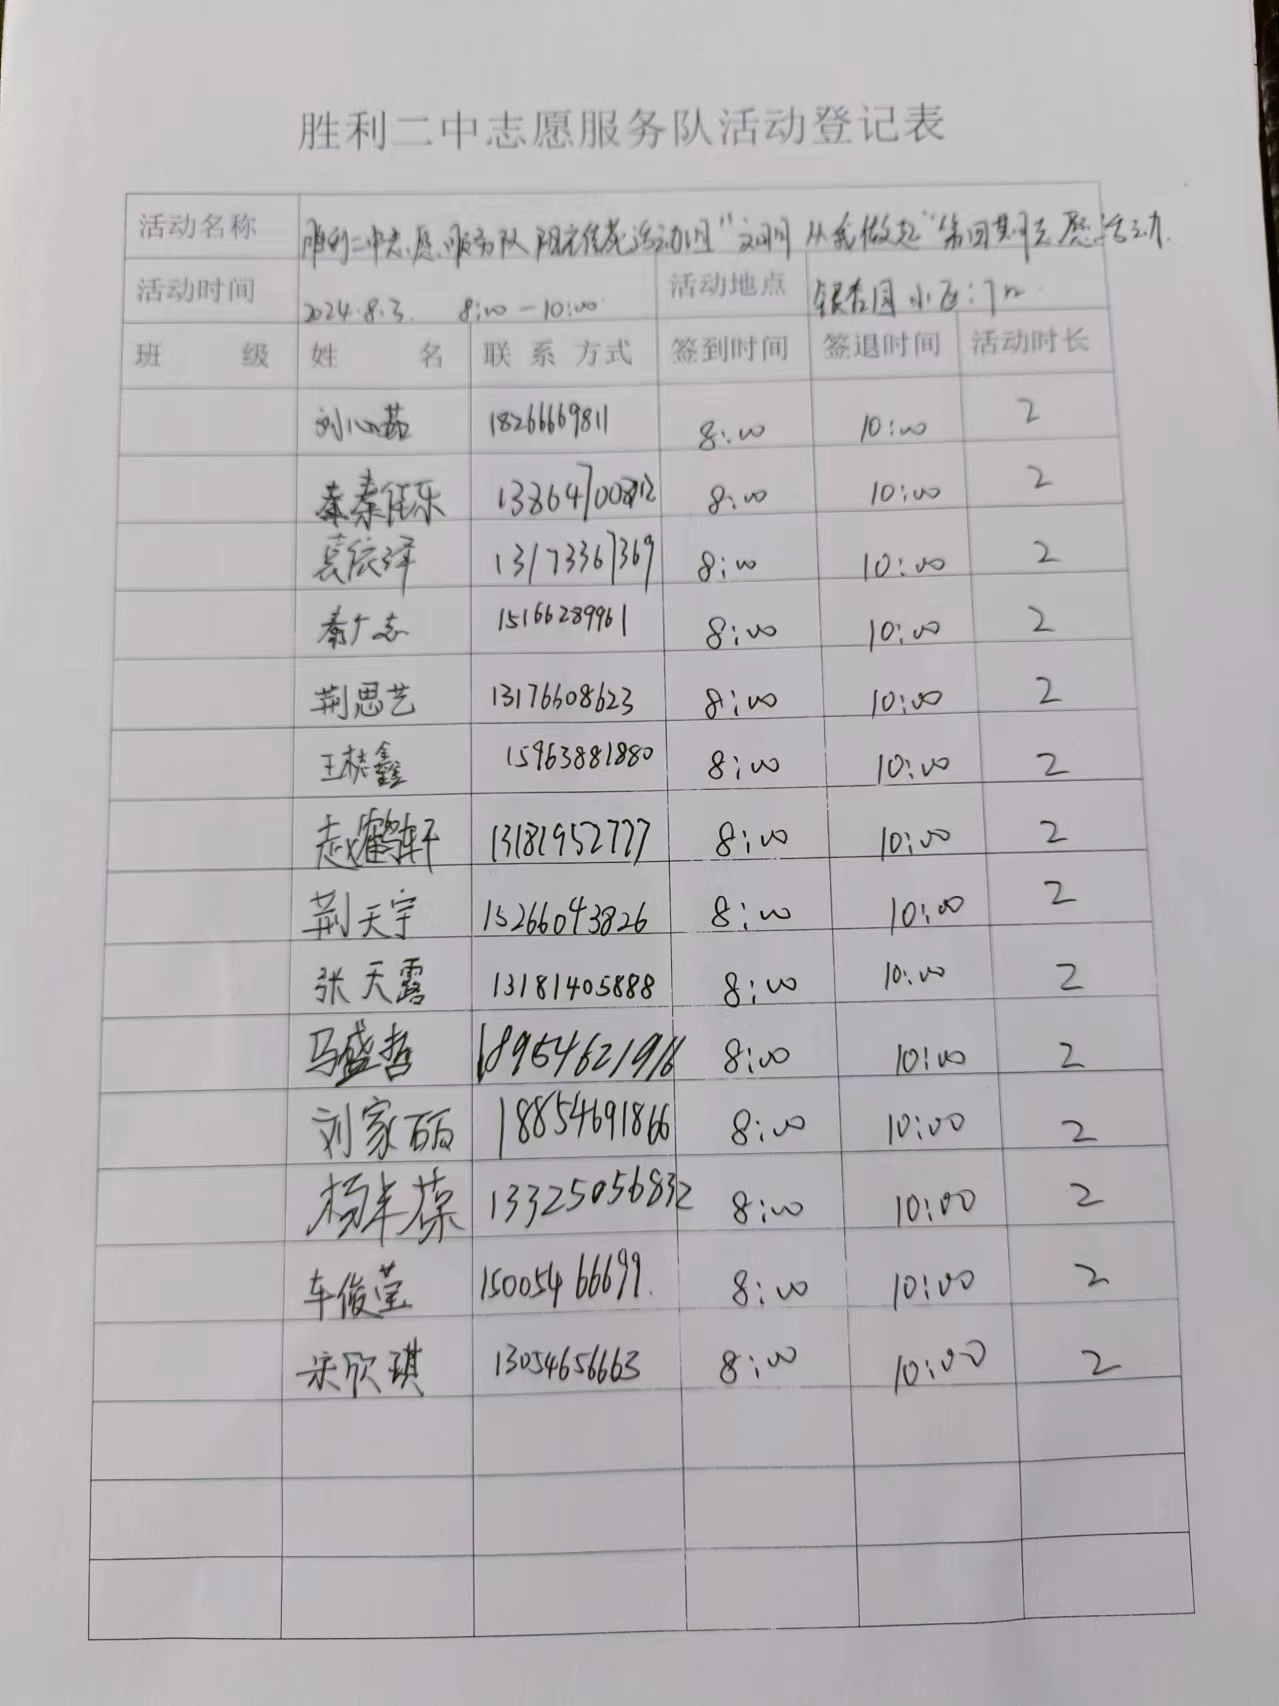 胜利二中志愿服务队活动登记表
活动名称 胜利二中志愿服务队阳光传花活动组"文明 从我做起"第四期志愿活动
活动时间 2024.8.3. 8:00-10:00 活动地点 银杏园小区:
班 级 姓 名 联 系 方式 签到时间 签退时间 活动时长
刘心茹 18266669811 8:00 10:00 2
秦任乐 8:00 10:00 2
13173367369 8:00 10:00 2
秦广志 15166289961 8:00 10:00 2
荆思艺 13176608623 8:00 10:00 2
王梓鑫 15963881880 8:00 10:00 2
赵鹤轩 13181952777 8:00 10:00 2
荆天宇 15266043826 8:00 10:00 2
张天露 13181405888 8:00 10:00 2
马盛哲 8:00 10:00 2
刘家 18854691866 8:00 10:00 2
杨 13325056832 8:00 10:00 2
车俊莹 15005466699. 8:00 10:00 2
宋欣琪 13054656663 8:00 10:00 2